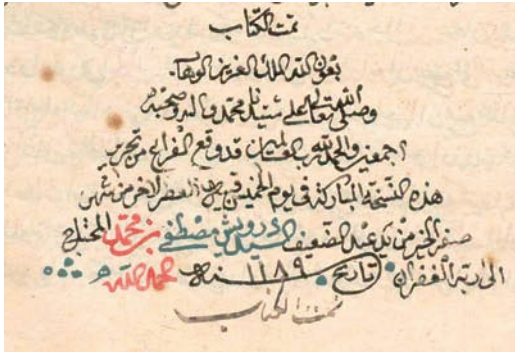 تمت الكتاب
بعون الله الملك العزيز الوهاب
وصلى الله تعالى على سيدنا محمد واله وصحبه
اجمعين والحمد لله رب العالمين قد وقع الفراغ من تحرير
هذه النسخة المباركة فى يوم الخميس قريب العصر الاخر من شهر
صفر الخير من يد عبد الضعيف السيد درويش مصطفى بن محمد المحتاج
الى ربه الغفران تاريخ سنه ١١٨٩
تمت الكتاب